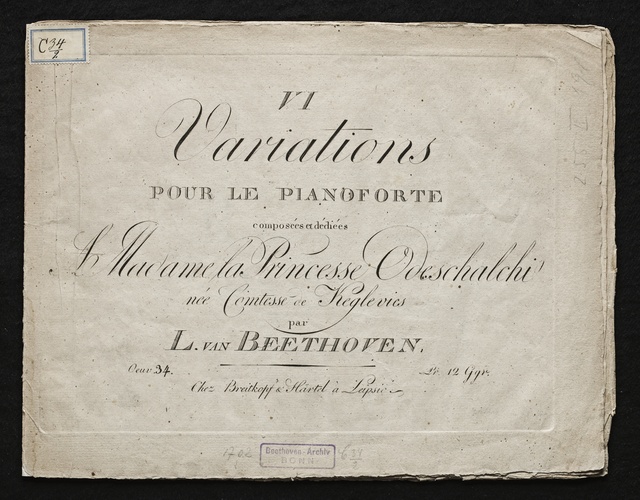 C 34/2
VI
Variations
POUR LE PIANOFORTE
composées et dédiées
à Madame la Princesse Odeschalchi
née Comtesse de Keglevics
par
L. VAN BEETHOVEN.
Oeuv. 34.
Pr. 12 Ggr.
Chez Breitkopf & Härtel à Leipsic
Beethoven-Archiv
BONN